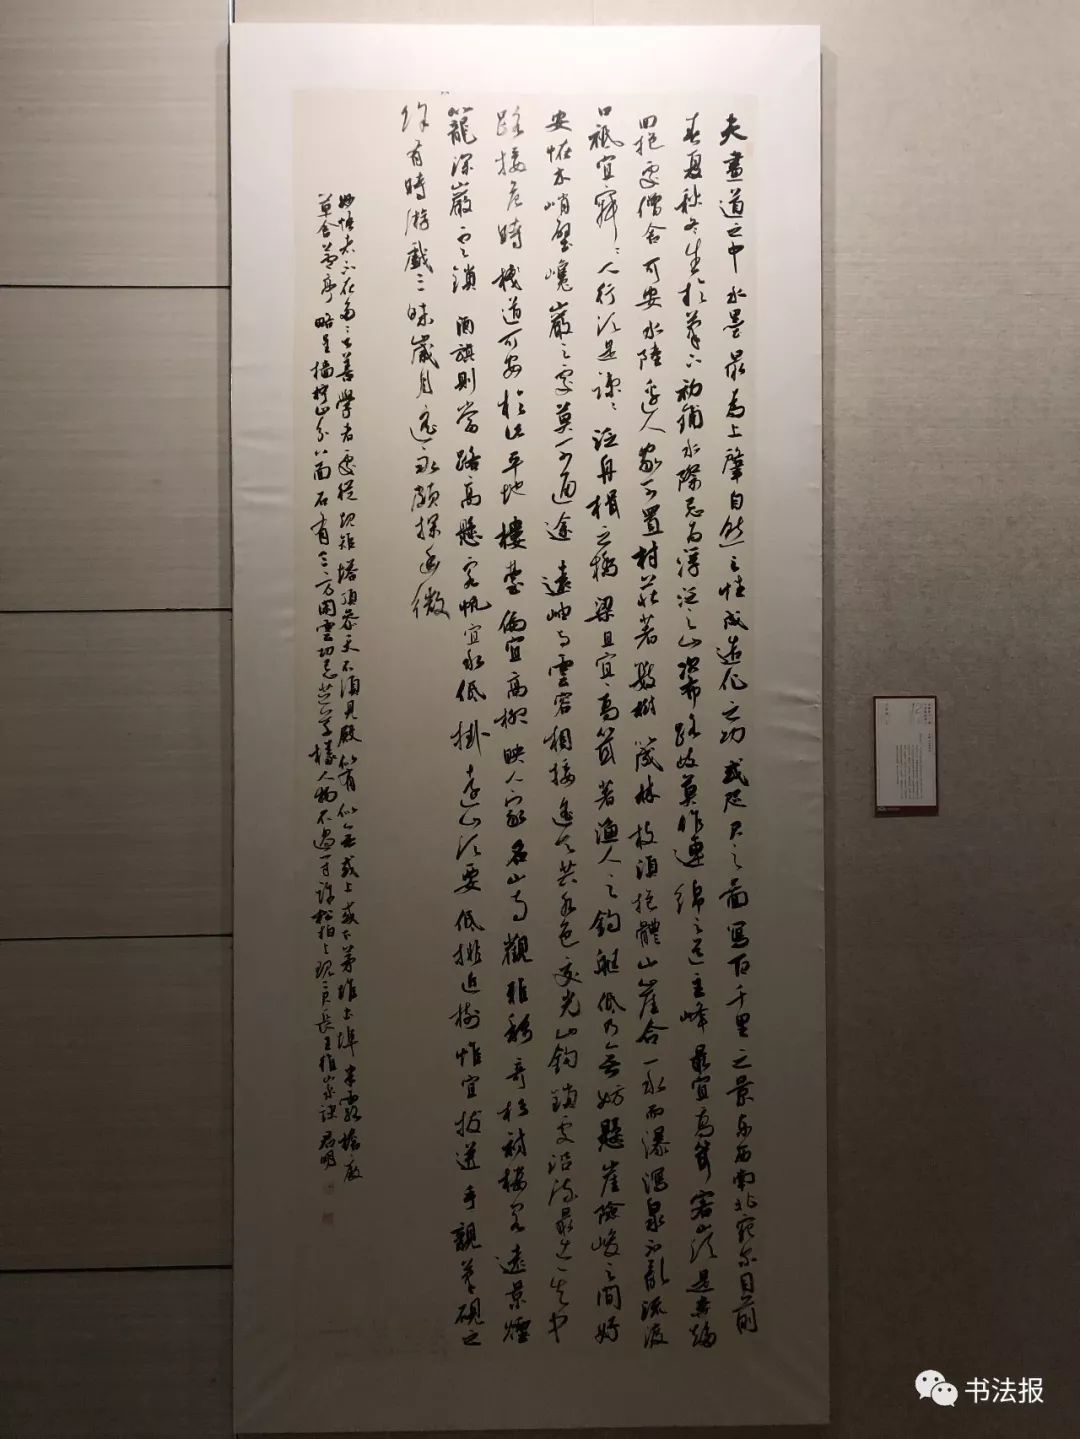 夫畫道之中水墨最為上肇自然之性成造化之功或咫尺之圖寫百千里之景東西南北宛爾目前
春夏秋冬生於筆下初鋪水際忌為浮泛之山次布路歧莫作連綿之道主峰最宜高聳客山須是奔趨
回抱處僧舍可安水陸邊人家可置村莊著數樹以成林枝須抱體山崖合一水而瀑瀉泉不亂流渡
口祗宜寂〻人行須是疎〻泛舟楫之橋梁且宜高聳著漁人之釣艇低乃無妨懸崖險峻之間好
安怪木峭壁巉巖之處莫可通途遠岫與雲容相接遙天共水色交光山鉤鎖處沿流最出其中
路接危時棧道可安於此平地樓臺偏宜高柳映人家名山寺觀雅稱奇杉襯樓閣遠景煙
籠深巖雲鎖酒旗則當路高懸客帆宜水低掛遠山須要低排近樹惟宜拔迸手親筆硯之
餘有時游戲三昧歲月遙永頗探幽微
妙悟者不在多言善學者還從規矩塔頂參天不須見殿似有似無或上或下茅堆土埠半露檐廒
草舍蘆亭略呈檣檸山分八面石有三方閑雲切忌芝草樣人物不過一寸許松柏上現二尺長王維山水訣君明
书法报